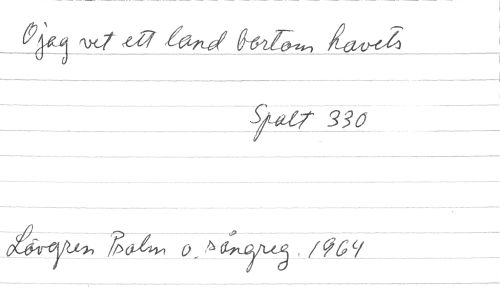 O jag vet ett land bortom havets
Spalt 330
Lövgren Psalm o. sångreg. 1964